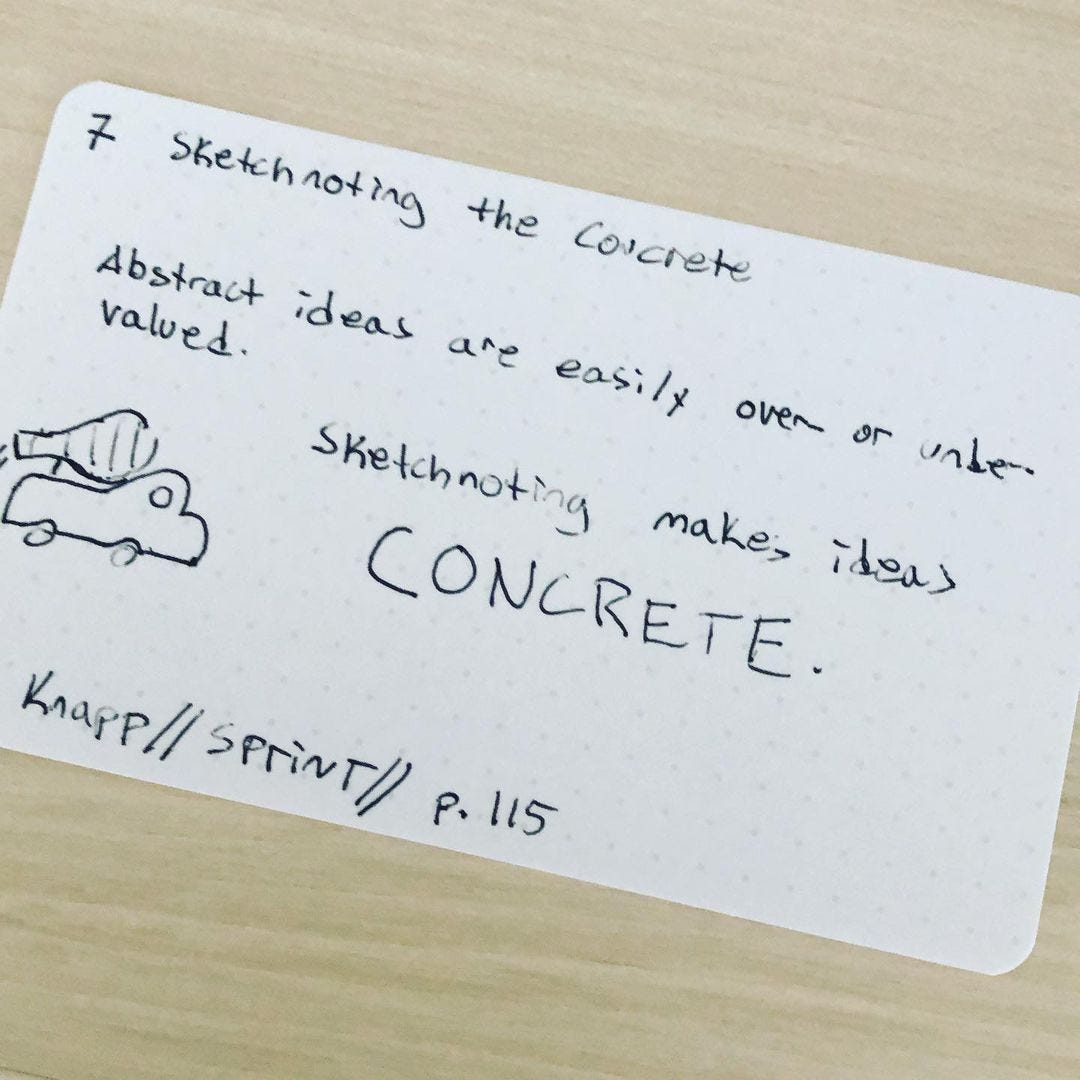 7 Sketchnoting the Concrete
Abstract ideas are easily over or under-
valued.
Sketchnoting makes ideas
CONCRETE.
Knapp// SPRINT// p. 115